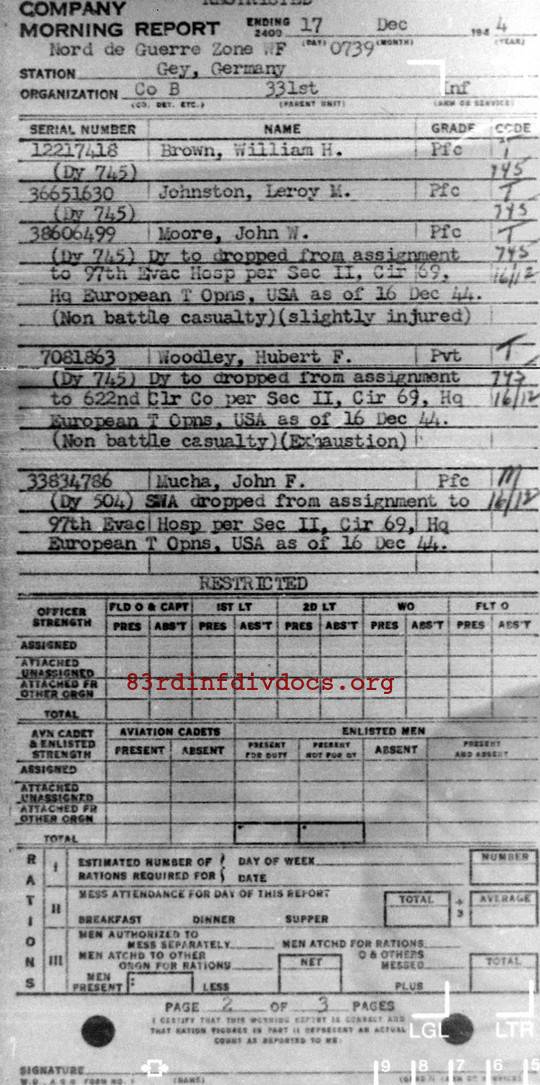 RESTRICTED
COMPANY
MORNING REPORT ENDING 2400 17 Dec 194 4
(DAY) (MONTH) (YEAR)
Nord de Guerre Zone WF 0739
STATION Gey, Germany
ORGANIZATION Co B 331st Inf
(CO. DET. ETC.) (PARENT UNIT) (ARM OR SERVICE)
SERIAL NUMBER NAME GRADE CODE
12217418 Brown, William H. Pfc T
(Dy 745) 745
36651630 Johnston, Leroy M. Pfc T
(Dy 745) 745
38606499 Moore, John W. Pfc T
(Dy 745) Dy to dropped from assignment 745
to 97th Evac Hosp per Sec II, Cir 69, 16/12
Hq European T Opns, USA as of 16 Dec 44.
(Non battle casualty)(slightly injured)
7081863 Woodley, Hubert F. Pvt T
(Dy 745) Dy to dropped from assignment
to 622nd Clr Co per Sec II, Cir 69, Hq 16/12
European T Opns, USA as of 16 Dec 44.
(Non battle casualty)(Exhaustion)
33834786 Mucha, John F. Pfc M
(Dy 504) SWA dropped from assignment to 16/12
97th Evac Hosp per Sec II, Cir 69, Hq
European T Opns, USA as of 16 Dec 44.
RESTRICTED
OFFICER STRENGTH FLD O & CAPT 1ST LT 2D LT WO FLT O
PRES ABS'T PRES ABS'T PRES ABS'T PRES ABS'T PRES ABS'T
ASSIGNED
ATTACHED UNASSIGNED
ATTACHED FR OTHER ORGN
83rdinfdivdocs.org
TOTAL
AVN CADET & ENLISTED STRENGTH AVIATION CADETS ENLISTED MEN
PRESENT ABSENT PRESENT FOR DUTY PRESENT NOT FOR DY ABSENT PRESENT AND ABSENT
ASSIGNED
ATTACHED UNASSIGNED
ATTACHED FR OTHER ORGN
TOTAL
RATIONS
I ESTIMATED NUMBER OF DAY OF WEEK NUMBER
RATIONS REQUIRED FOR DATE
II MESS ATTENDANCE FOR DAY OF THIS REPORT TOTAL ÷ 3 AVERAGE
BREAKFAST DINNER SUPPER
III MEN AUTHORIZED TO MESS SEPARATELY MEN ATCHD FOR RATIONS
MEN ATCHD TO OTHER ORGN FOR RATIONS NET O & OTHERS MESSED TOTAL
MEN PRESENT LESS PLUS
PAGE 2 OF 3 PAGES
I CERTIFY THAT THIS MORNING REPORT IS CORRECT AND
THAT RATION FIGURES IN PART II REPRESENT AN ACTUAL
COUNT AS REPORTED TO ME:
LGL LTR
SIGNATURE
9 8 7 6 5
W.D., A.G.O. FORM NO. 1 (NAME)